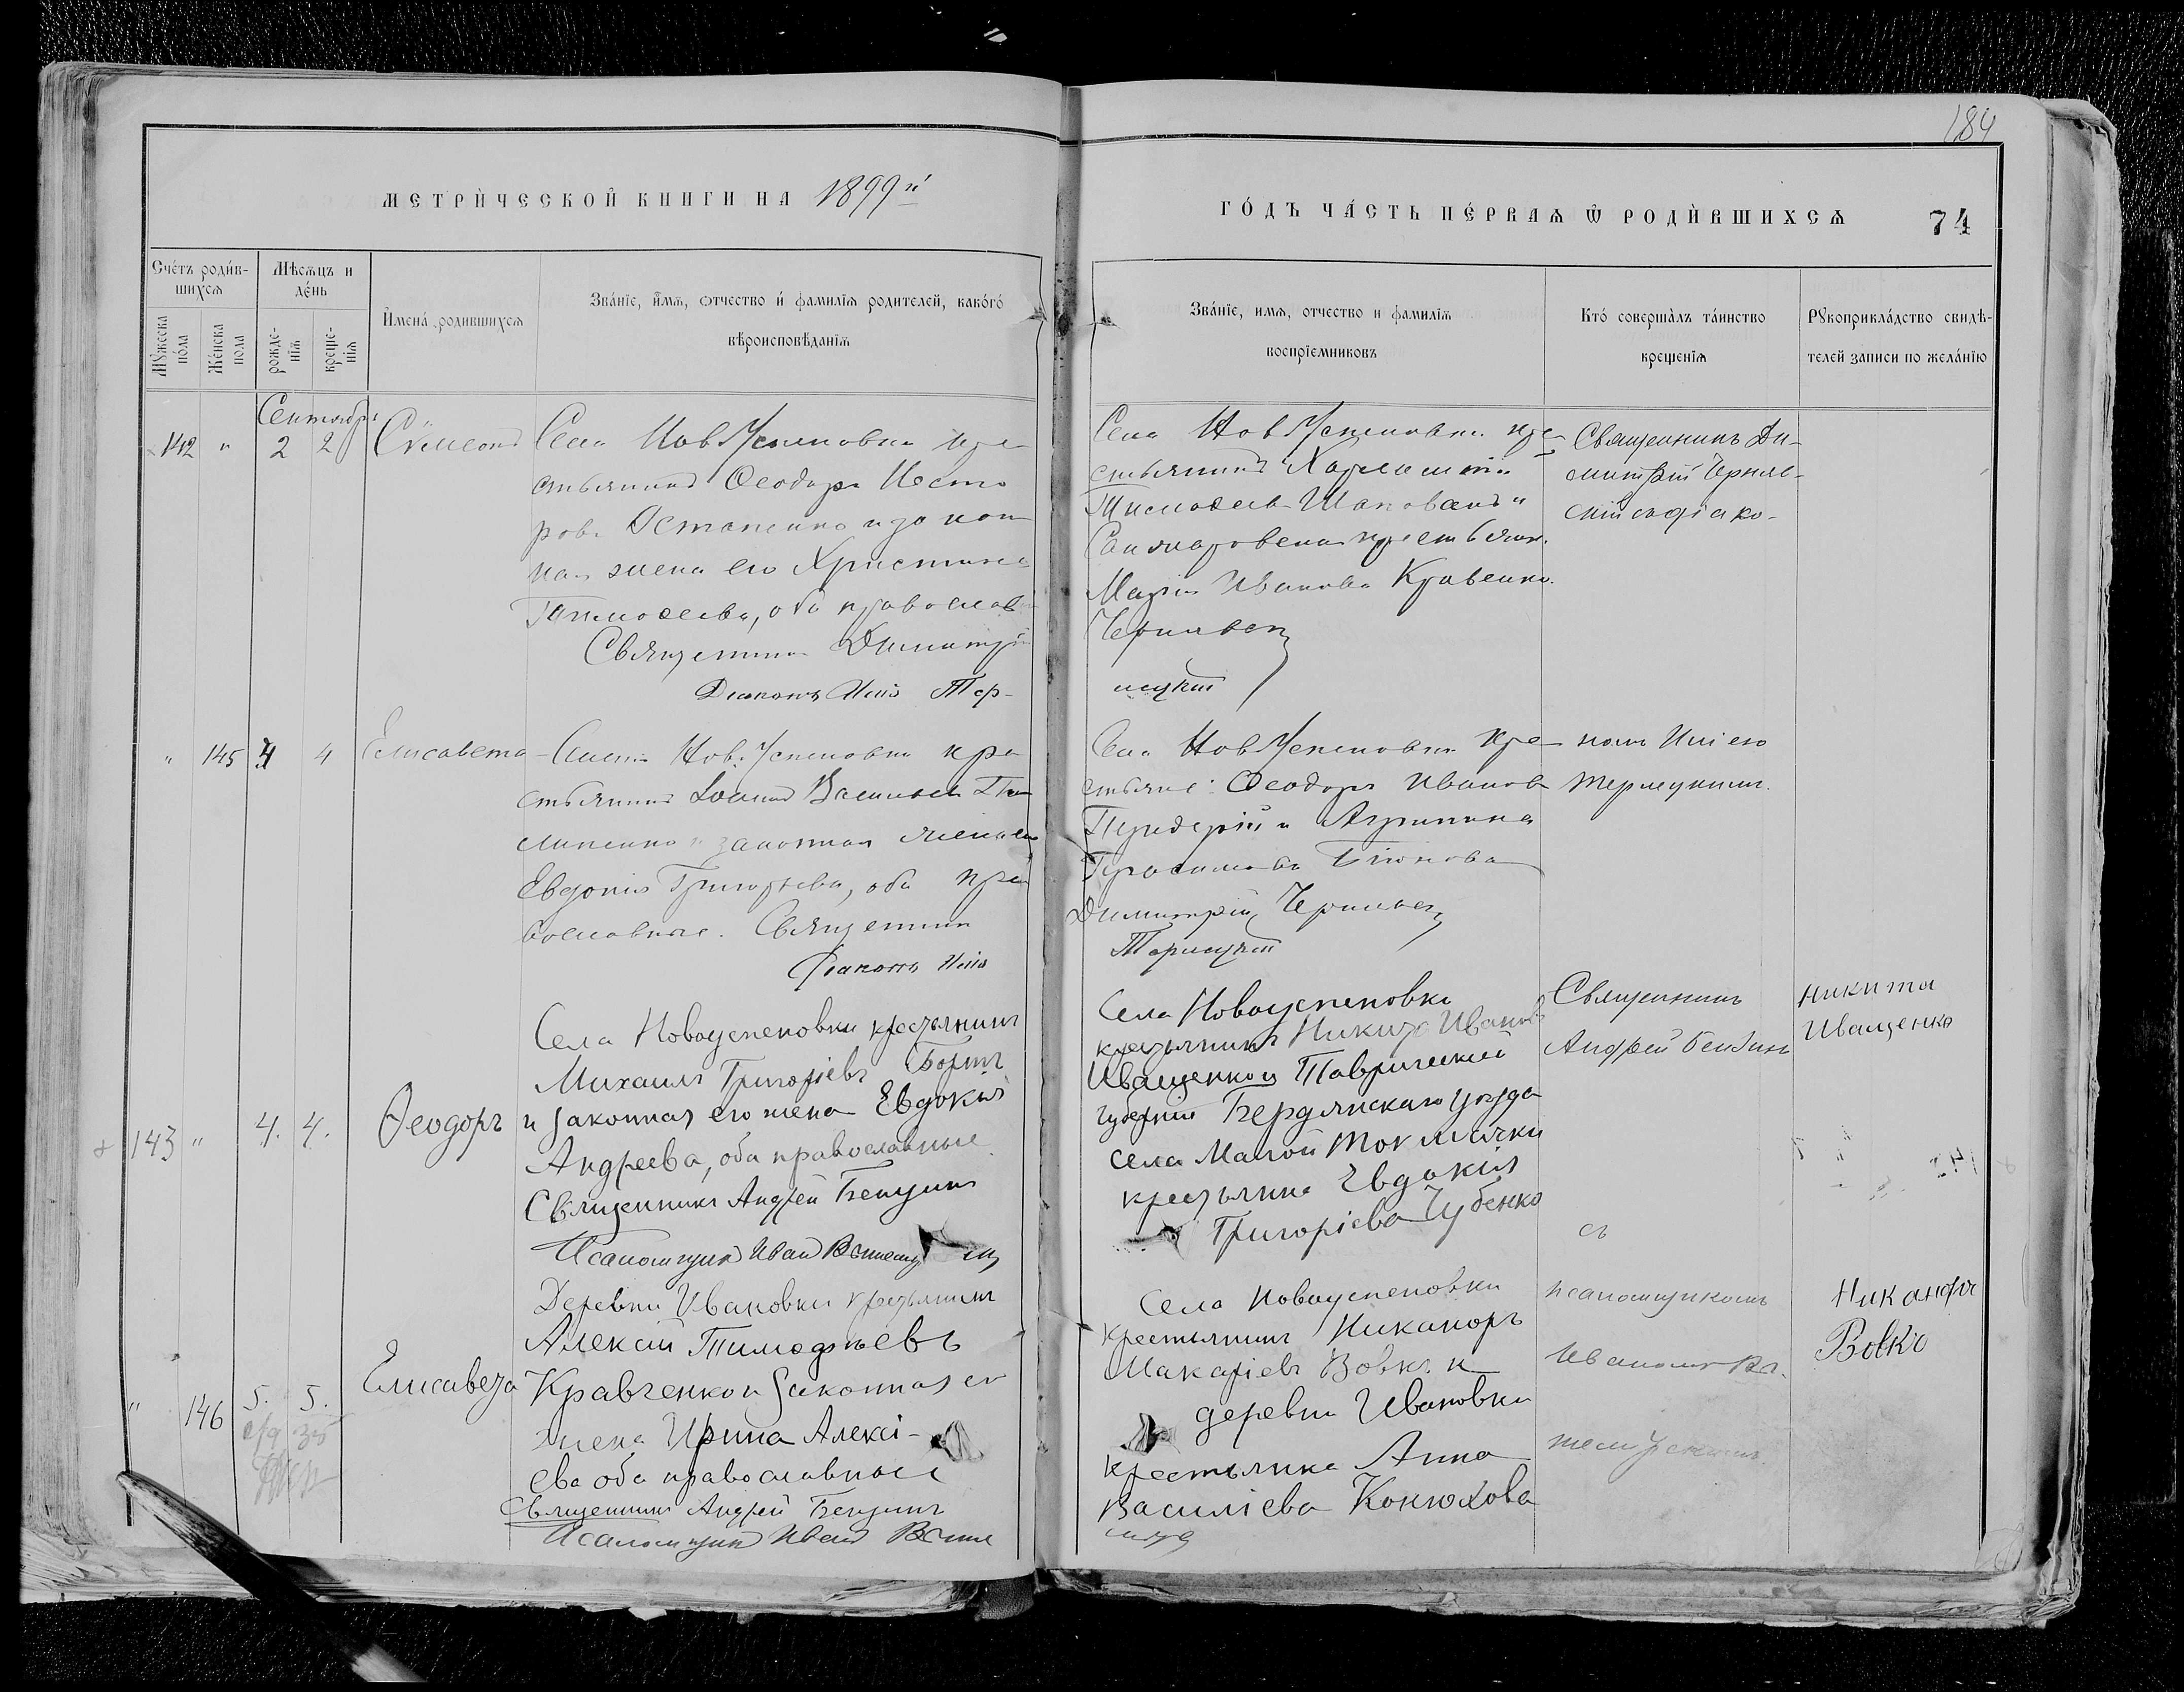 184
МЕТРИЧЕСКОЙ КНИГИ НА 1899й
ГОДЪ ЧАСТЬ ПЕРВАѦ Ѡ РОДИВШИХСѦ 74
Счетъ родив-
шихсѧ
Мѣсѧцъ и
день
Имена родившихсѧ
Званїе, имѧ, ѻтчество и фамилїѧ родителей, какогѡ
вѣроисповѣданїѧ
Мꙋжеска
пола
Женска
пола
рожде-
нїѧ
креще-
нїѧ
Званїе, имѧ, отчество и фамилїѧ
воспрїемниковъ
Кто совершалъ таинство
крещенїѧ
Рꙋкоприкладство свидѣ-
телей записи по желанїю
Сентябрь
142 " 2 2 Сѵмеонъ
Села Нов Успеновки кре
стьянинъ Ѳеодоръ Несто
ровъ Остапенко и закон
ная жена его Христина
Тимоѳеева, оба православ
Священникъ Димитрій
Діаконъ Илія Тер-
Села Нов Успеновки кре-
стьянинъ Харлампій
Тимоѳеевъ Шаповалъ и
крестьян.
Марія Иванова Кравченко.
Чернявск
лецкій
Священникъ Ди-
митрій Черняв-
скій съ діако-
" 145 4 4 Елисавета
Села Нов. Успеновки кре
стьянинъ Іоаннъ Васильевъ Пи
липенко и законная жена его
Евдокія Григорьева, оба пра
вославные. Священникъ
Діаконъ Илія
Села Нов Успеновки кре-
стьяне: Ѳеодоръ Ивановъ
и Агрипина
Герасимова
Димитрій Чернявск
Терлецкій
номъ Иліею
Терлецкимъ.
143 " 4. 4. Ѳеодоръ
Села Новоуспеновки крестьянинъ
Михаилъ Григоріевъ
и законная его жена Евдокія
Андреева, оба православные
Священникъ Андрей Бензинъ
Псаломщикъ Иванъ
Села Новоуспеновки
крестьянинъ Никита Ивановъ
Иващенко и Таврической
губерніи Бердянскаго уѣзда
села Малой Токмачки
крестьянка Евдокія
Григоріева Чубенко
Священникъ
Андрей Бензинъ
съ
Никита
Иващенко
" 146 5. 5. Елисавета
Деревни Ивановки крестьянинъ
Алексій Тимоѳѣевъ
Кравченко и законная его
жена Ирина Алексі-
ева оба православные
Священникъ Андрей Бензинъ
Псаломщикъ Иванъ
Села Новоуспеновки
крестьянинъ Никаноръ
Макаріевъ Вовкъ и
деревни Ивановки
крестьянка Анна
Василіева Конюхова
псаломщикомъ
Иваномъ
Никаноръ
Вовкъ